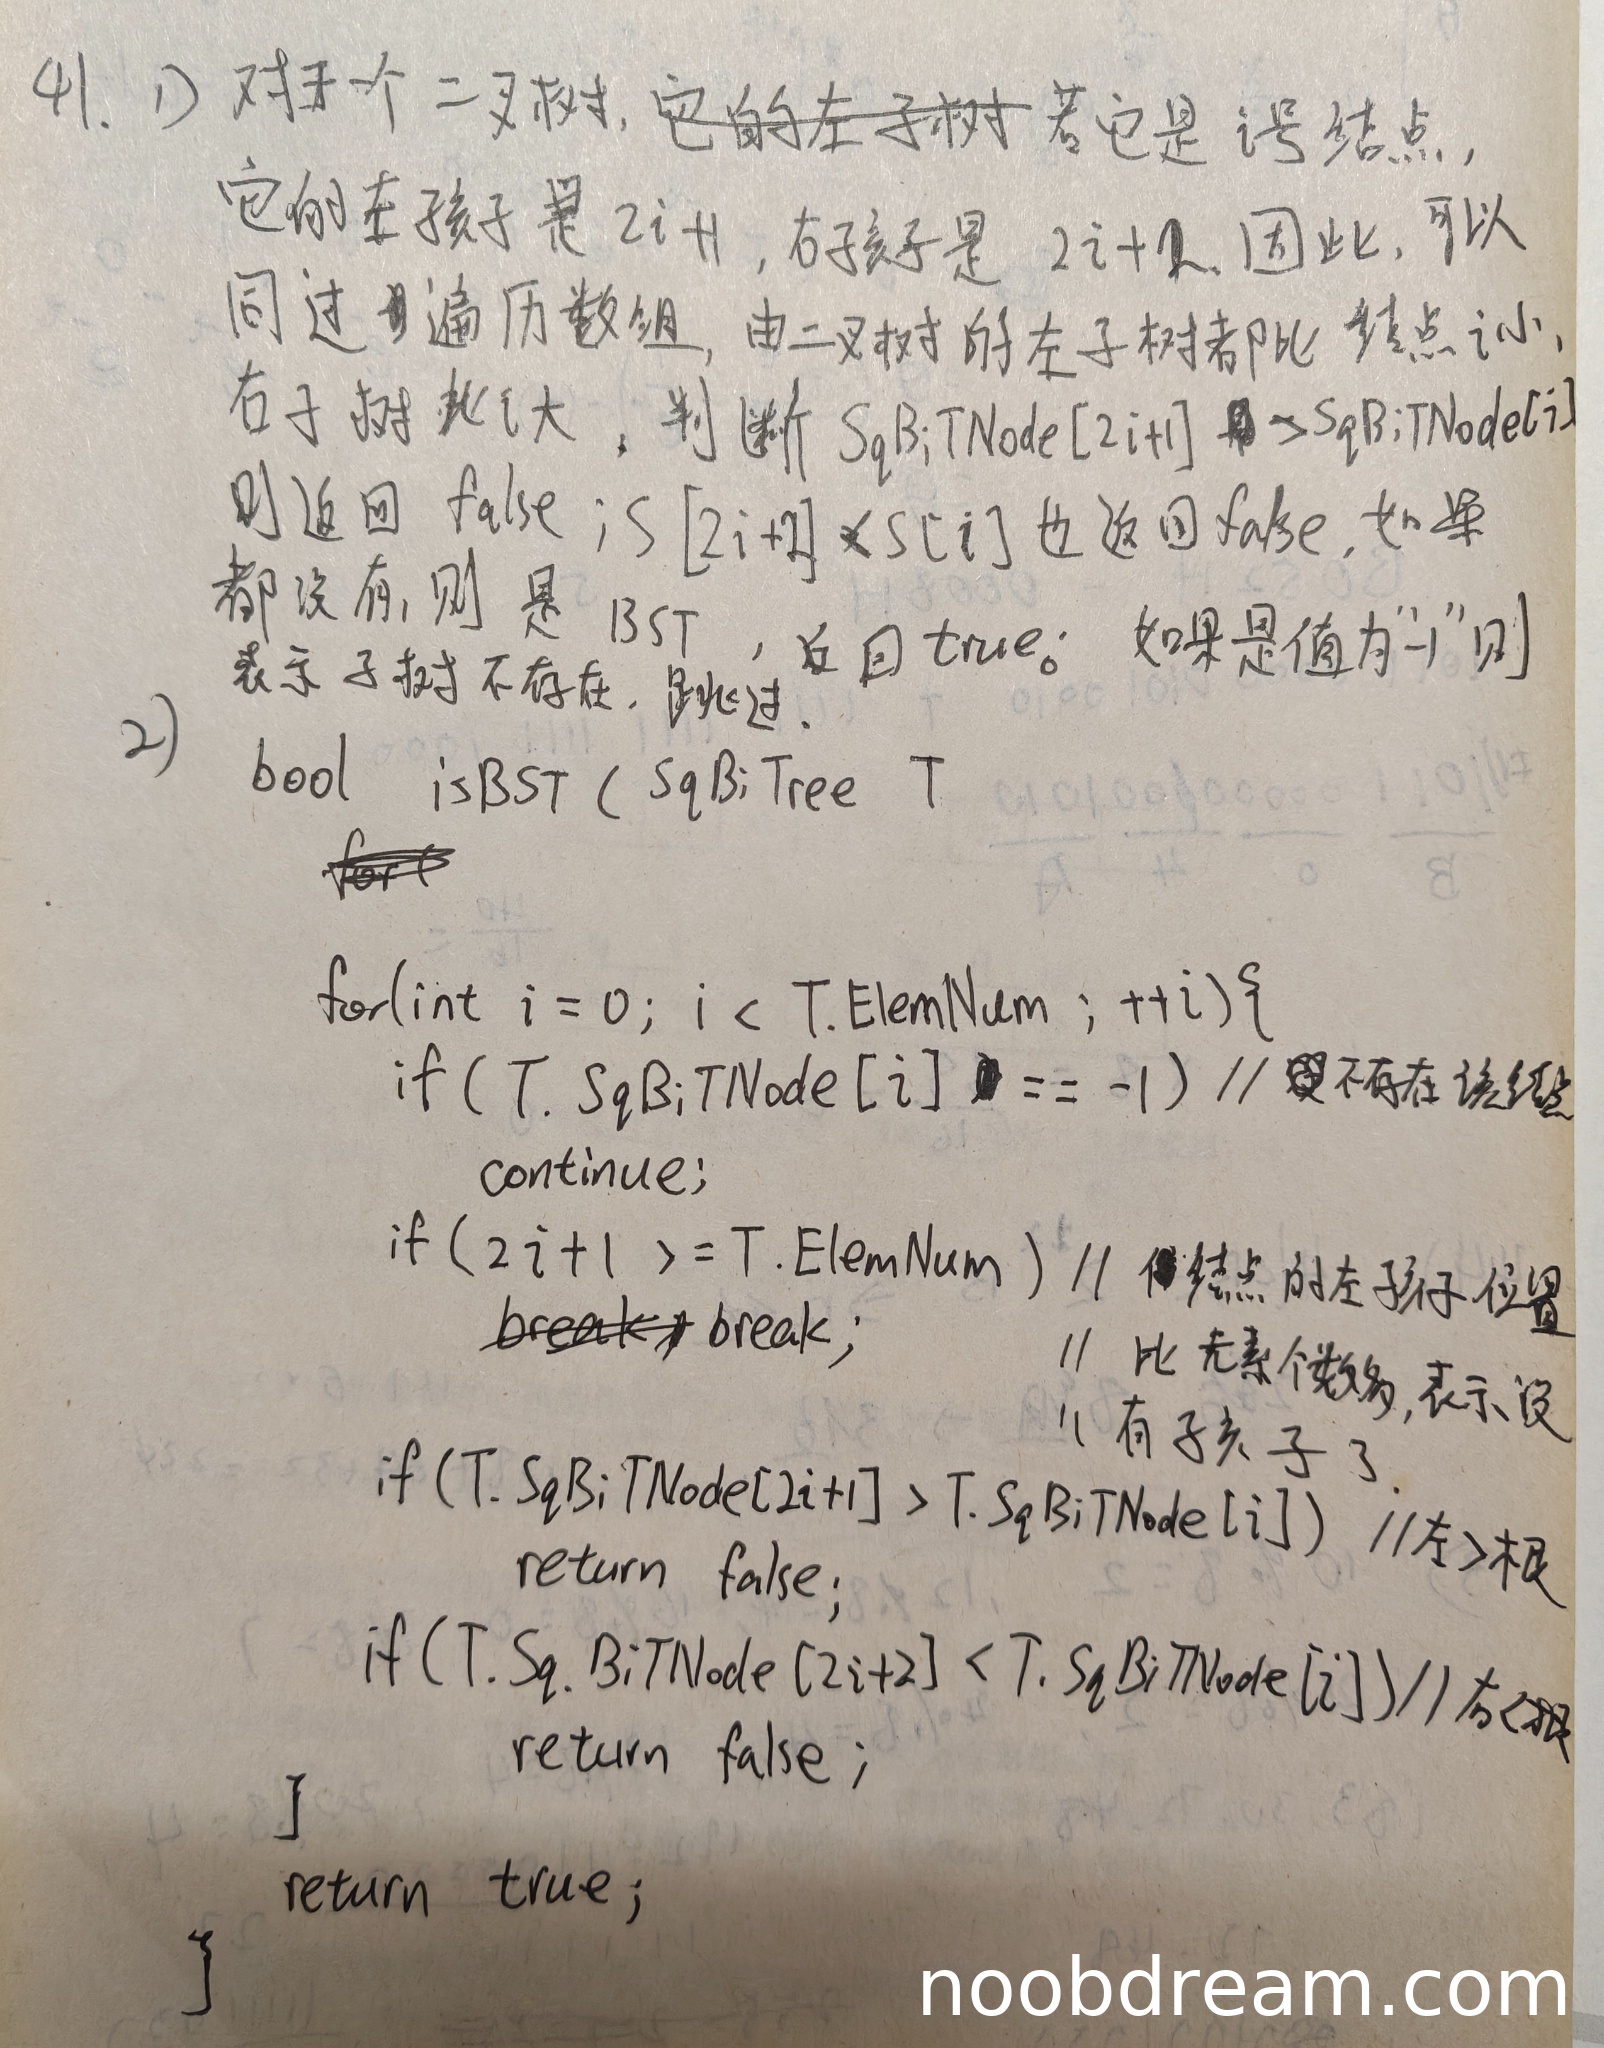 41. 1) 对于一个二叉树, 它的左子树 若它是i号结点,
它的左孩子是 2i+1, 右孩子是 2i+2. 因此, 可以
同过遍历数组, 由二叉树的左子树都比结点i小,
右子树比i大, 判断 SqBiTNode[2i+1] > SqBiTNode[i]
则返回 false; S[2i+2] < S[i] 也返回false, 如果
都没有, 则是 BST, 返回 true。 如果是值为"-1"则
表示子树不存在, 跳过.
2) bool isBST ( SqBiTree T
for(
for(int i = 0; i < T.ElemNum ; ++i){
if ( T. SqBiTNode [i] == -1) // 不存在该结点
continue;
if ( 2i+1 >= T.ElemNum ) // 结点的左孩子位置
break; break; // 比元素个数多, 表示没
// 有子孩子了.
if (T. SqBiTNode[2i+1] > T.SqBiTNode[i]) //左>根
return false;
if (T.Sq.BiTNode[2i+2] < T.SqBiTNode[i]) //右<根
return false;
}
return true;
}
noobdream.com